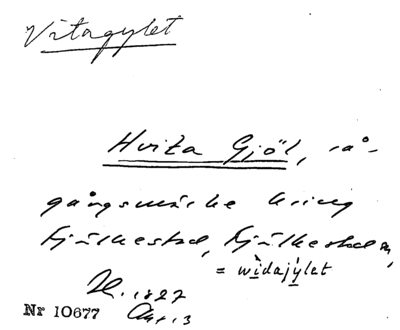 Vitagylet
Hvita Gjöl, rå-
gångsmärke kring
Fjälkestad, Fjälkestad sn,
= widajylet
H. 1827
Nr 10677